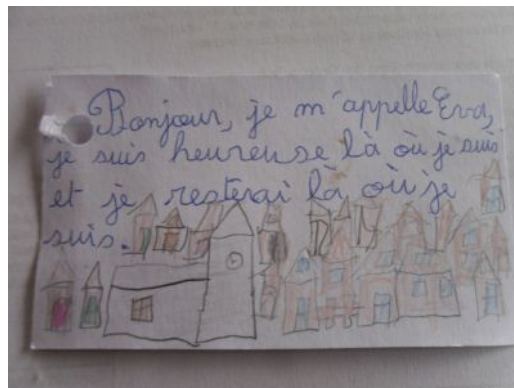 Bonjour, je m'appelle Eva,
je suis heureuse là où je suis
et je resterai là où je
suis.